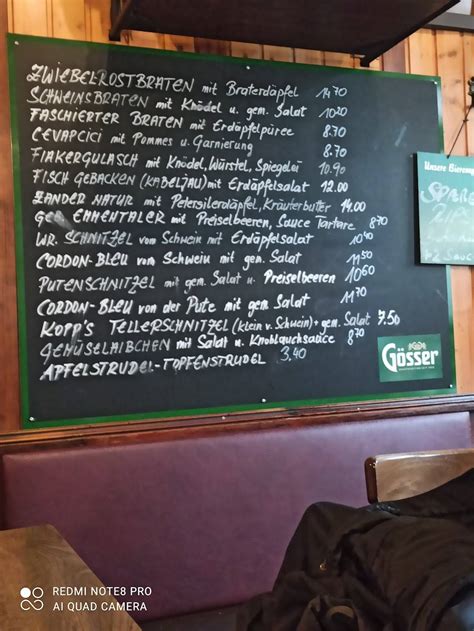 ZWIEBELROSTBRATEN mit Braterdäpfel 14.70
SCHWEINSBRATEN mit Knödel u. gem. Salat 10.20
FASCHIERTER BRATEN mit Erdäpfelpüree 8.70
CEVAPCICI mit Pommes u. Garnierung 8.70
FIAKERGULASCH mit Knödel, Würstel, Spiegelei 10.90
FISCH GEBACKEN (KABELJAU) mit Erdäpfelsalat 12.00
ZANDER NATUR mit Petersilerdäpfel, Kräuterbutter 14.00
GEB EMMENTALER mit Preiselbeeren, Sauce Tartare 8.70
WR. SCHNITZEL vom Schwein mit Erdäpfelsalat 10.40
CORDON-BLEU vom Schwein mit gem. Salat 11.50
PUTENSCHNITZEL mit gem. Salat u. Preiselbeeren 10.60
CORDON-BLEU von der Pute mit gem. Salat 11.70
KOPP'S TELLERSCHNITZEL (klein v. Schwein) + gem. Salat 7.50
GEMÜSELAIBCHEN mit Salat u. Knoblauchsauce 8.70
APFELSTRUDEL-TOPFENSTRUDEL 3.40
Gösser
Unsere
REDMI NOTE8 PRO
AI QUAD CAMERA